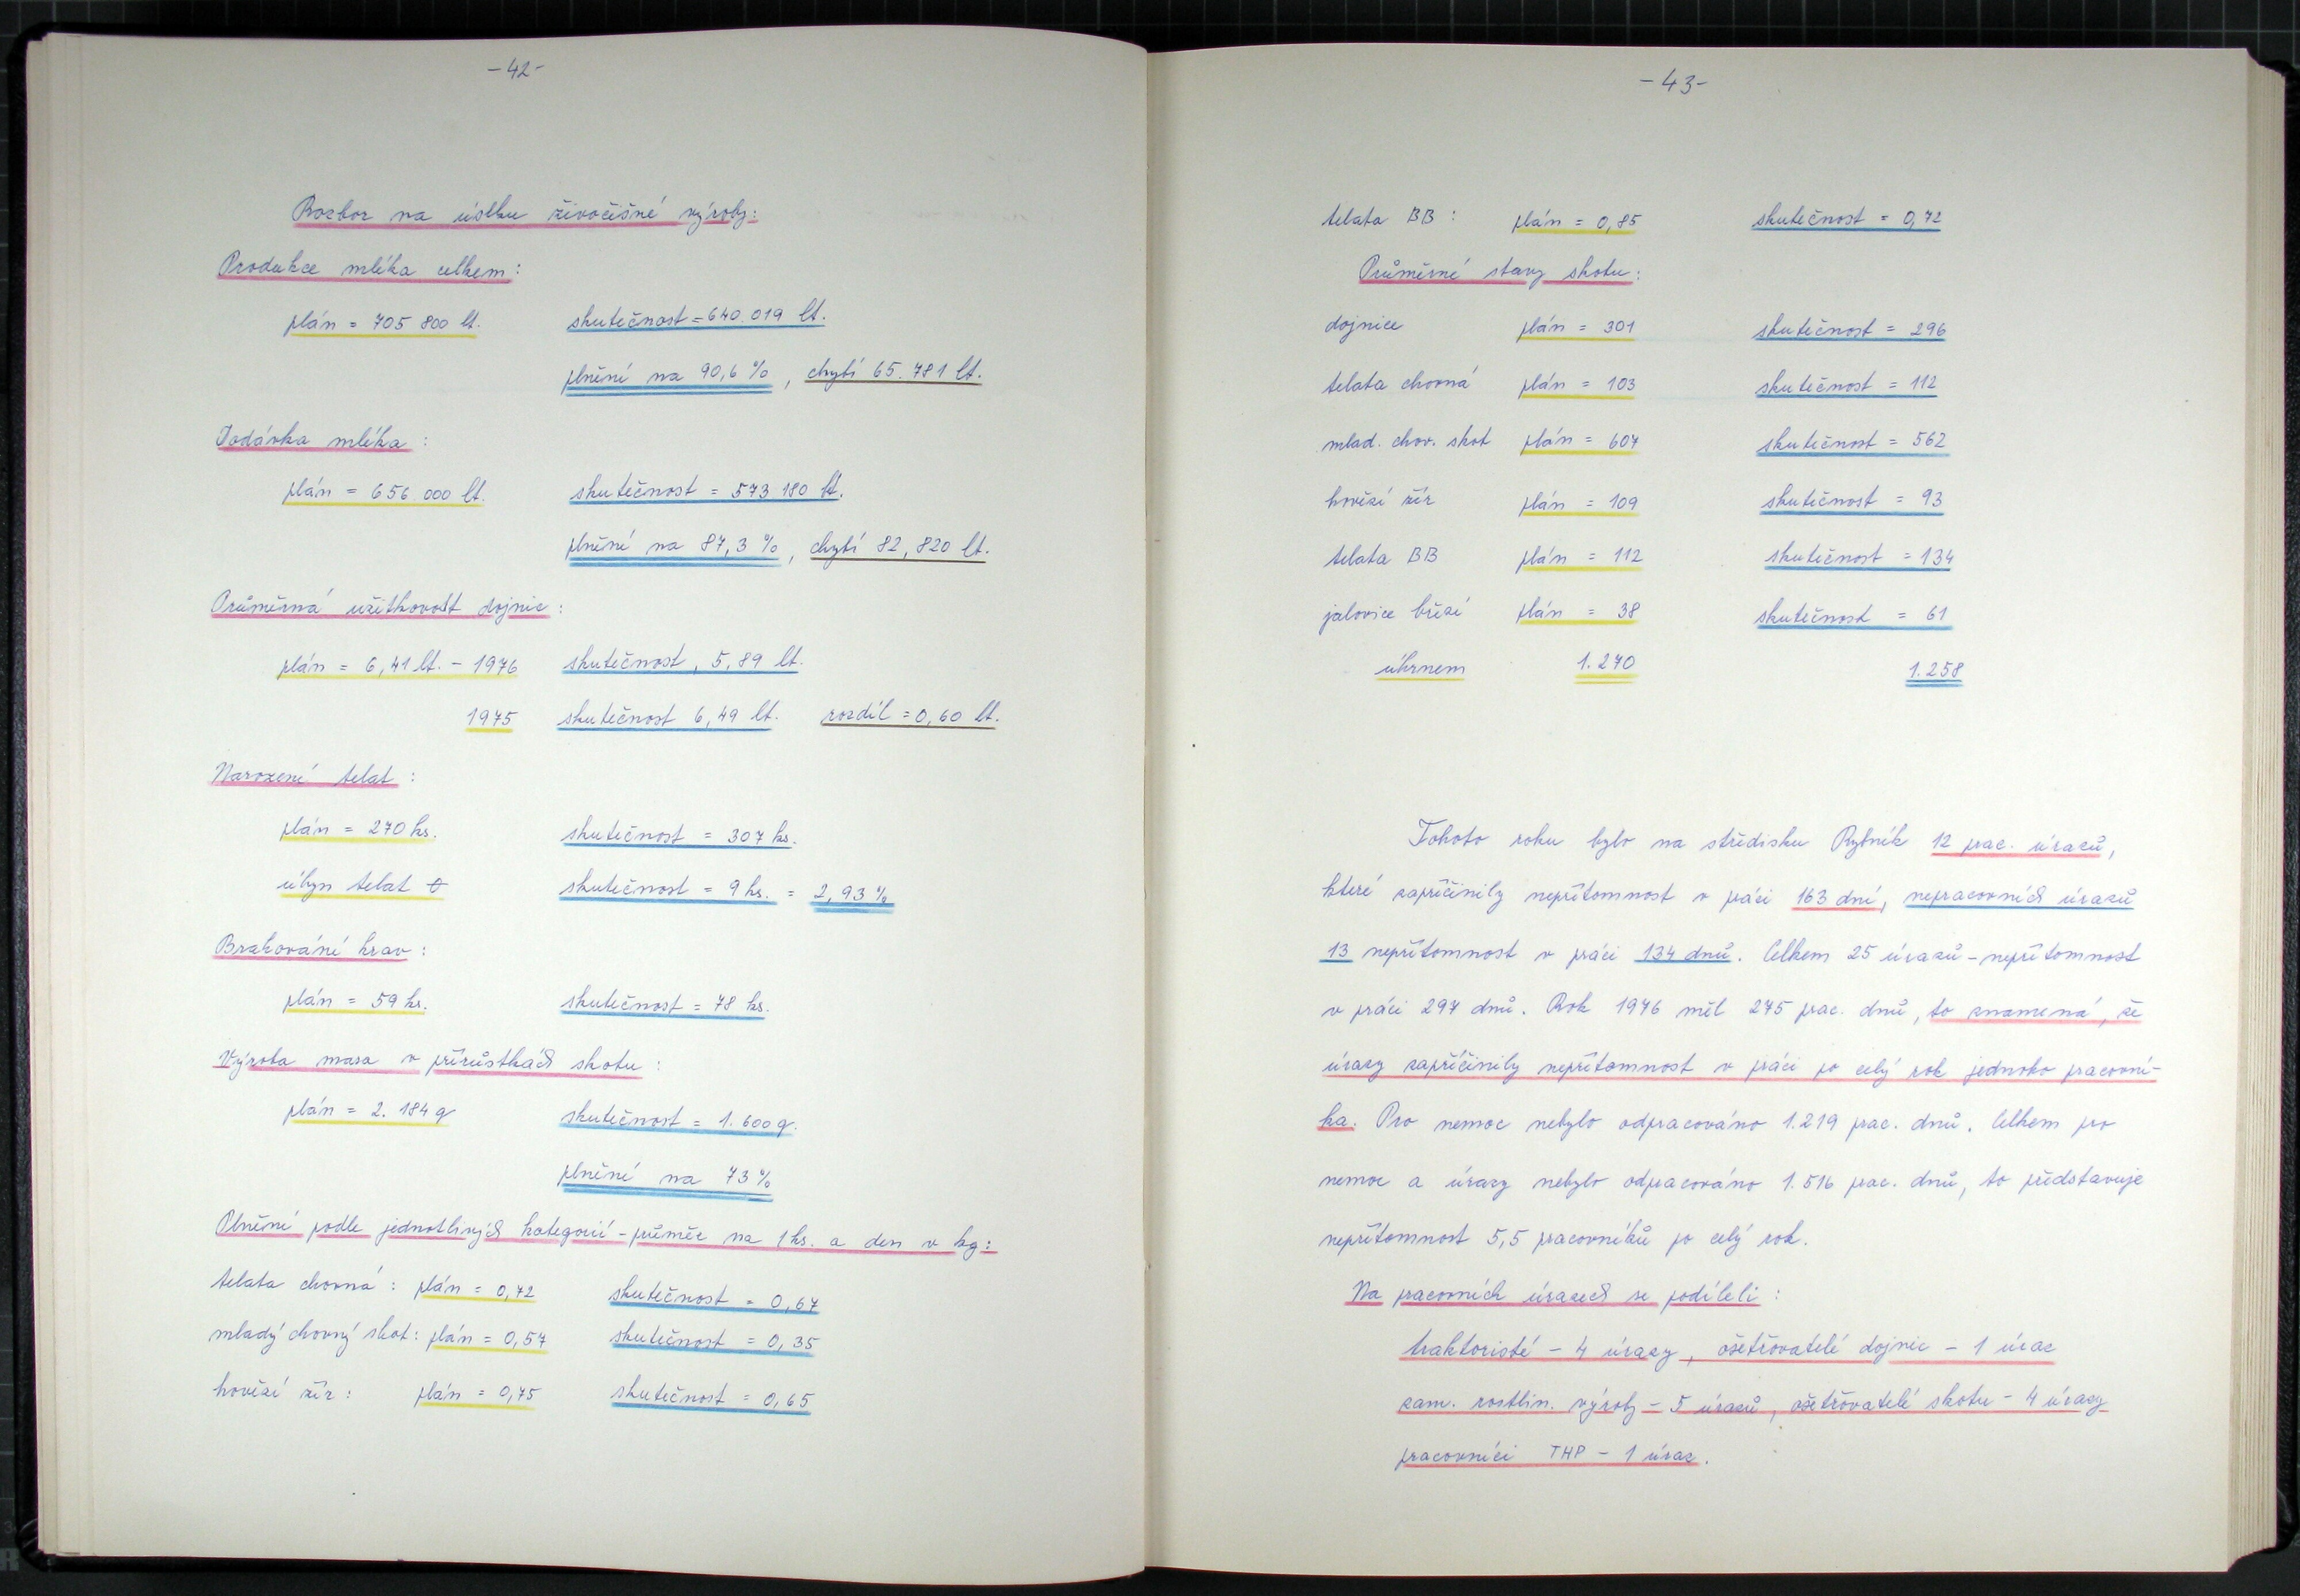 -42-
Rozbor na úseku živočišné výroby:
Produkce mléka celkem:
plán = 705 800 lt. skutečnost = 640.019 lt.
plnění na 90,6 %, chybí 65.781 lt.
Dodávka mléka :
plán = 656.000 lt. skutečnost = 573 180 lt.
plnění na 87,3 %, chybí 82,820 lt.
Průměrná užitkovost dojnic :
plán = 6,41 lt. - 1976 skutečnost, 5,89 lt.
1975 skutečnost 6,49 lt. rozdíl = 0,60 lt.
Narození telat :
plán = 270 ks. skutečnost = 307 ks.
úhyn telat skutečnost = 9 ks. = 2,93 %
Brakování krav :
plán = 59 ks. skutečnost = 78 ks.
Výroba masa v přírůstkách skotu :
plán = 2. 184 q skutečnost = 1. 600 q.
plnění na 73 %
Plnění podle jednotlivých kategorií - průměr na 1 ks. a den v kg:
telata chovná : plán = 0,72 skutečnost = 0,67
mladý chovný skot : plán = 0,57 skutečnost = 0,35
hovězí žír : plán = 0,75 skutečnost = 0,65
-43-
telata BB : plán = 0,85 skutečnost = 0,72
Průměrné stavy skotu :
dojnice plán = 301 skutečnost = 296
telata chovná plán = 103 skutečnost = 112
mlad. chov. skot plán = 607 skutečnost = 562
hovězí žír plán = 109 skutečnost = 93
telata BB plán = 112 skutečnost = 134
jalovice březí plán = 38 skutečnost = 61
úhrnem 1.270 1.258
Tohoto roku bylo na středisku Rybník 12 prac. úrazů,
které zapříčinily nepřítomnost v práci 163 dní, nepracovních úrazů
13 nepřítomnost v práci 134 dnů. Celkem 25 úrazů - nepřítomnost
v práci 297 dnů. Rok 1976 měl 275 prac. dnů, to znamená, že
úrazy zapříčinily nepřítomnost v práci po celý rok jednoho pracovní-
ka. Pro nemoc nebylo odpracováno 1.219 prac. dnů. Celkem pro
nemoc a úrazy nebylo odpracováno 1.516 prac. dnů, to představuje
nepřítomnost 5,5 pracovníků po celý rok.
Na pracovních úrazech se podíleli :
traktoristé - 4 úrazy, ošetřovatelé dojnic - 1 úraz
zam. rostlin. výroby - 5 úrazů, ošetřovatelé skotu - 4 úrazy
pracovníci THP - 1 úraz.